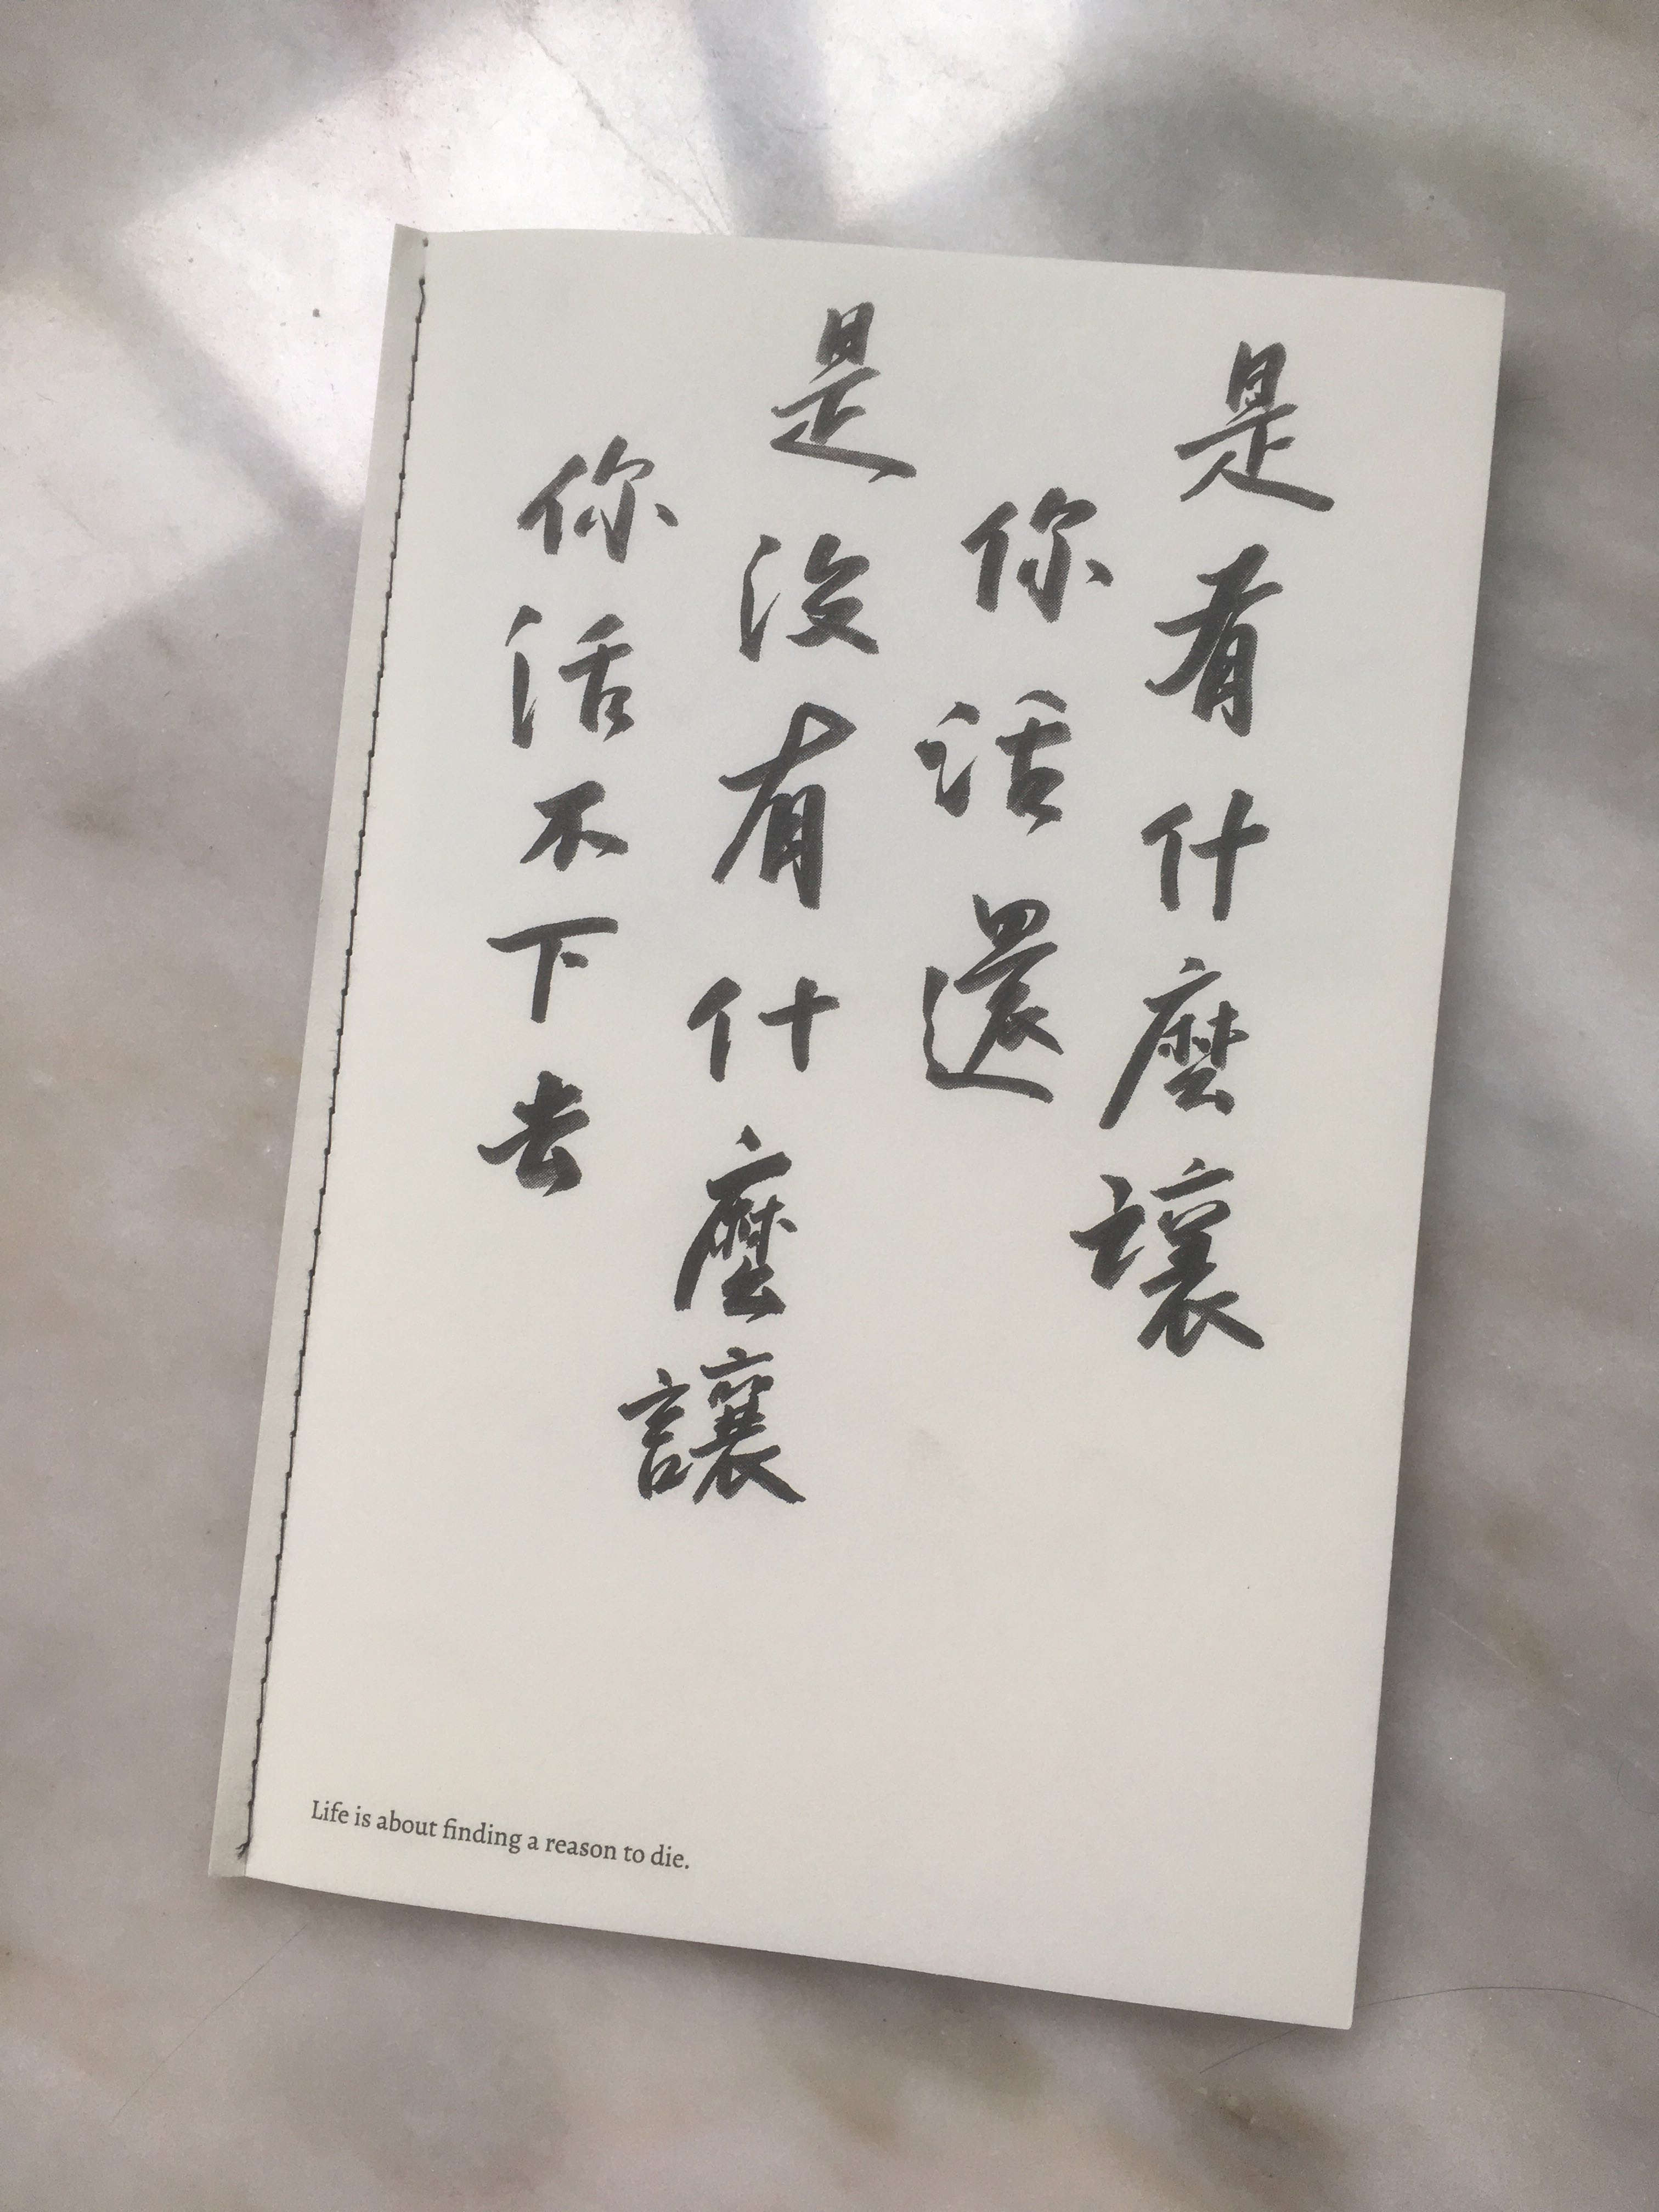 是有什麼讓
你活還
是沒有什麼讓
你活不下去
Life is about finding a reason to die.